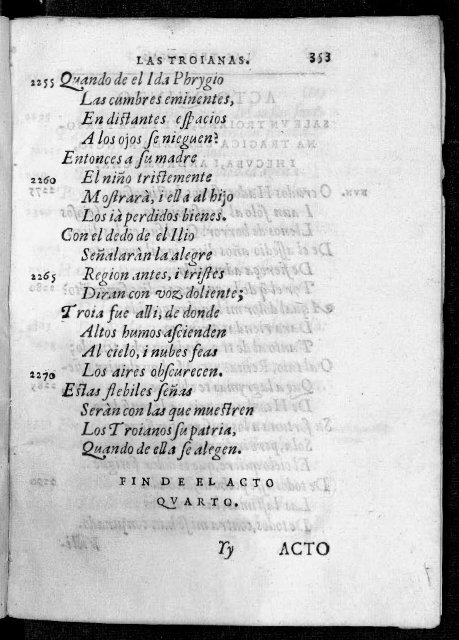 LAS TROIANAS. 353
2255 Quando de el Ida Phrygio
Las cumbres eminentes,
En distantes espacios
A los ojos se nieguen?
Entonces a su madre
2260 El niño tristemente
Mostrarà, i ella al hijo
Los ià perdidos bienes.
Con el dedo de el Ilio
Señalaràn la alegre
2265 Region antes, i tristes
Diran con voz doliente;
Troia fue alli, de donde
Altos humos ascienden
Al cielo, i nubes feas
2270 Los aires obscurecen.
Estas flebiles señas
Seràn con las que muestren
Los Troianos su patria,
Quando de ella se alegen.
FIN DE EL ACTO
QVARTO.
Yy ACTO